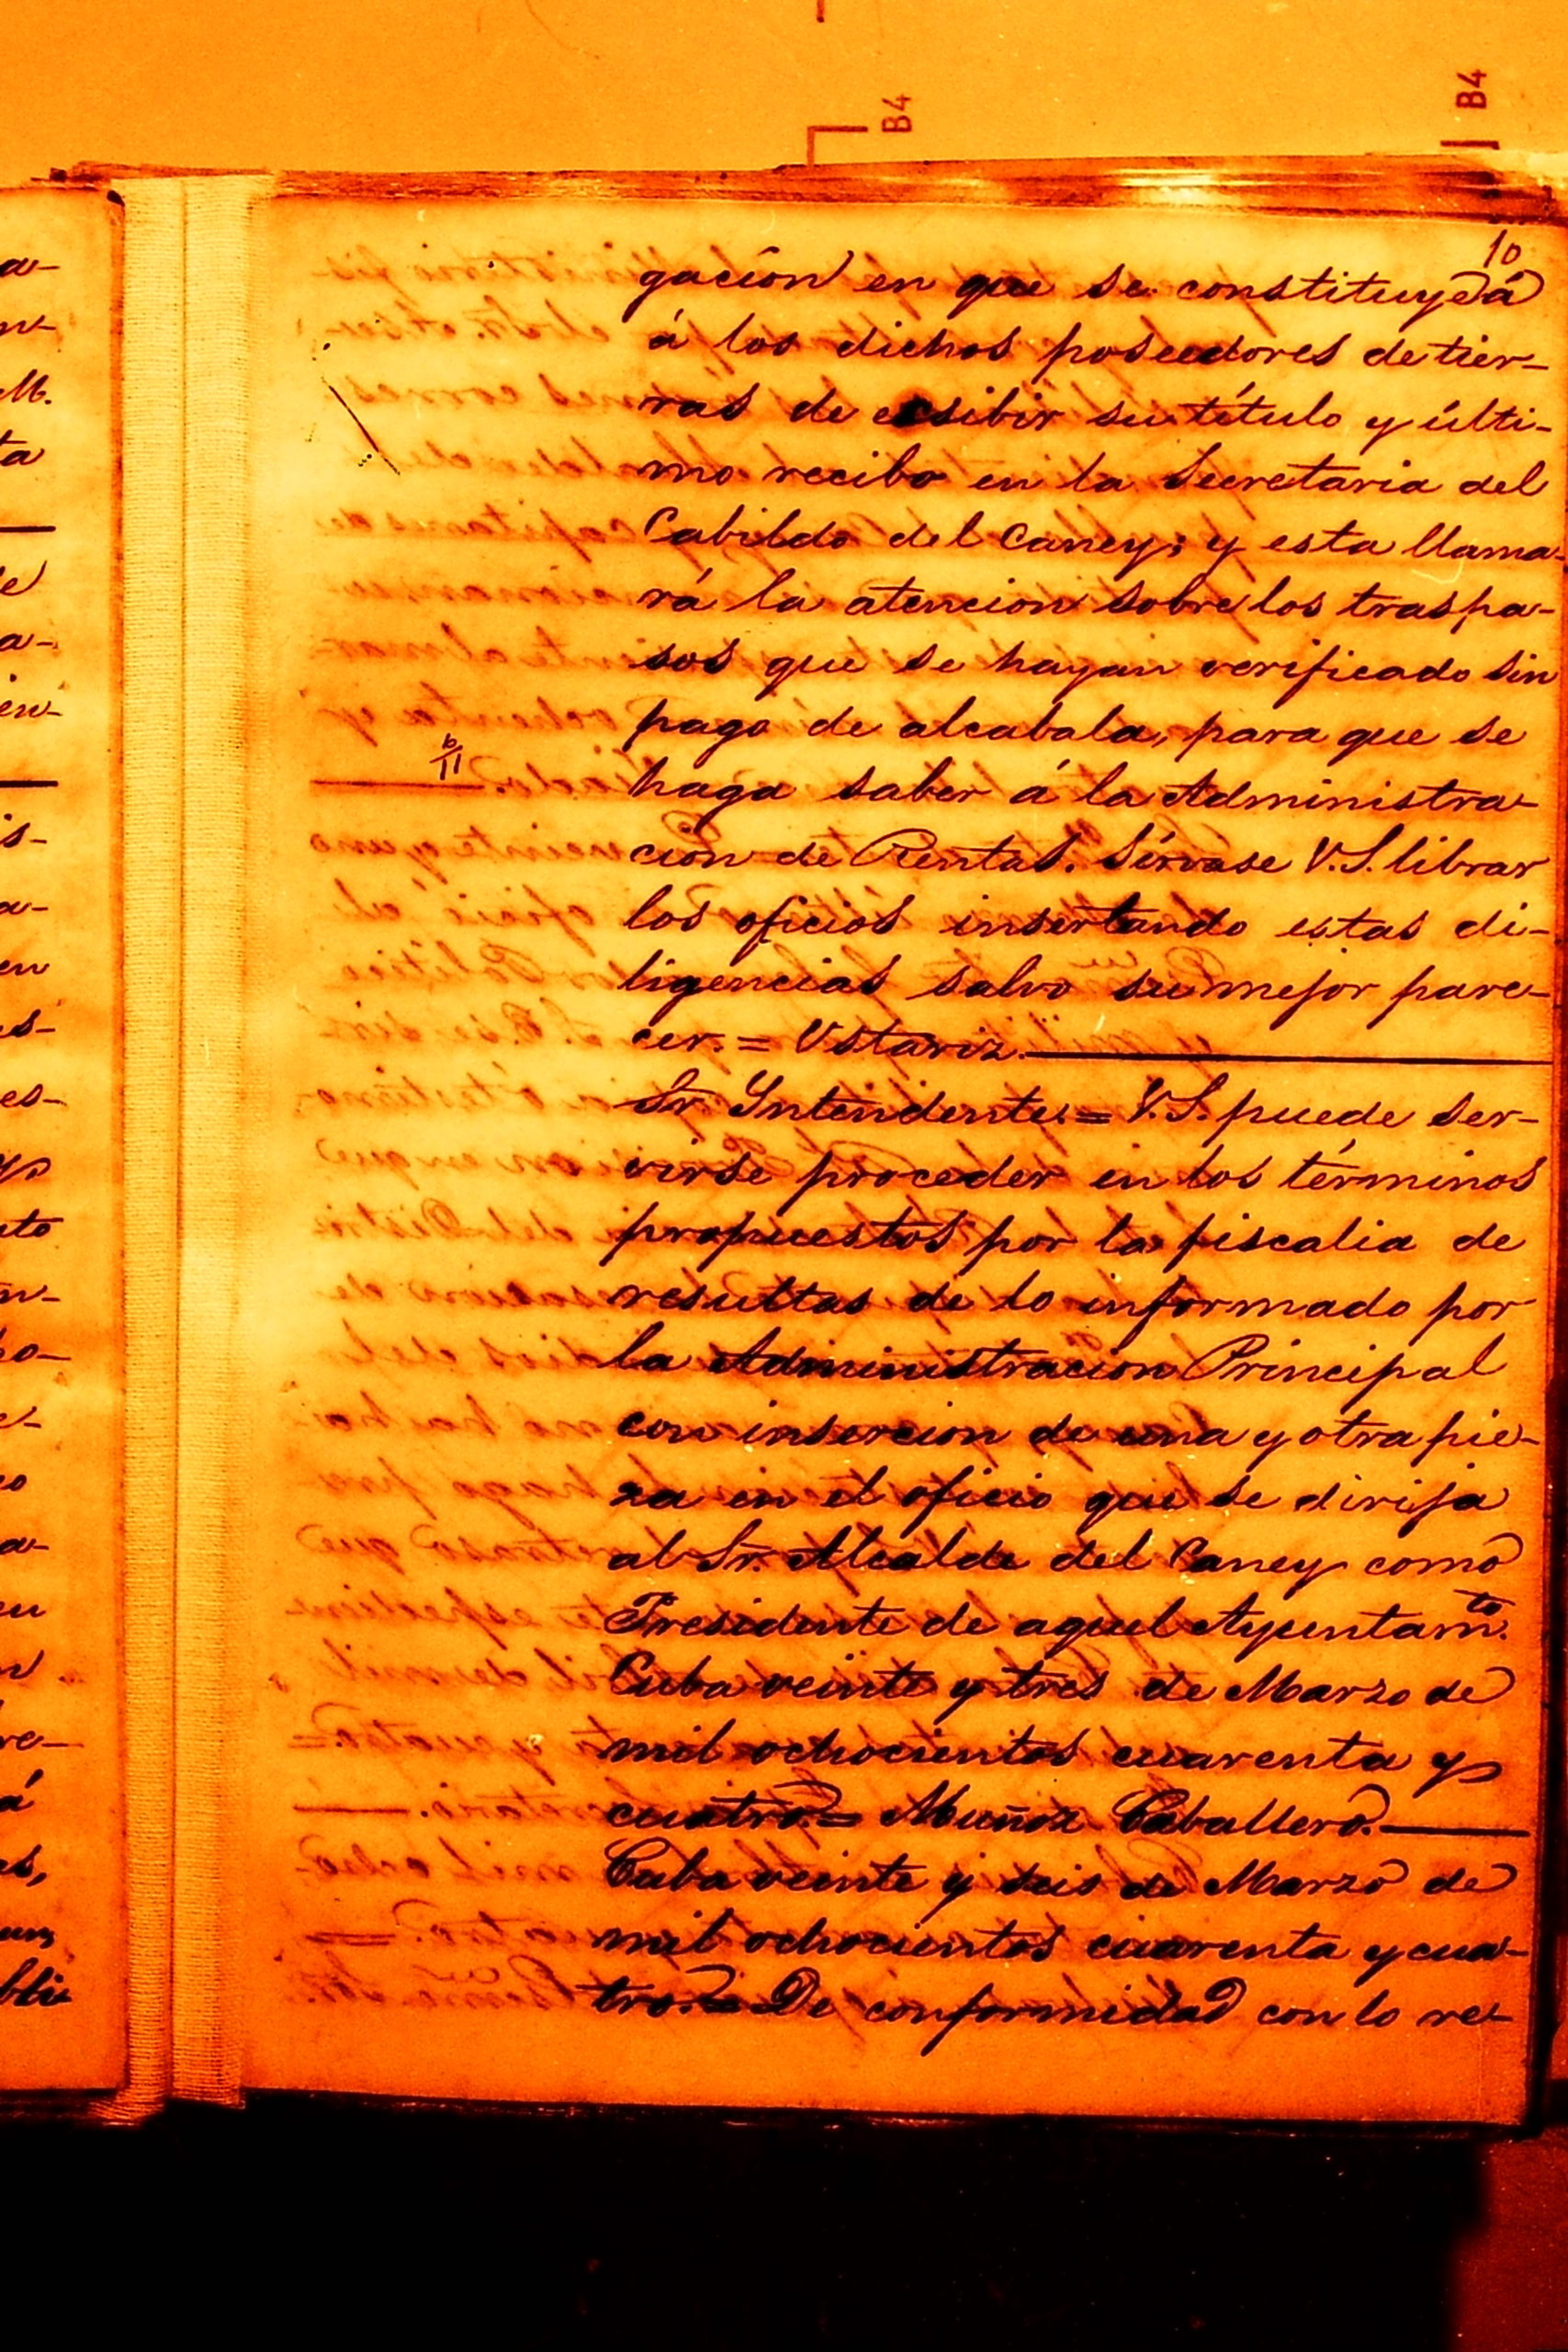 B4
B4
10
gacion en que se constituye á
á los dichos poseedores de tier-
ras de ecsibir su título y últi-
mo recibo en la Secretaria del
Cabildo del Caney; y esta llama-
rá la atencion sobre los traspa-
sos que se hayan verificado sin
pago de alcabala, para que se
haga saber á la Administra-
cion de Rentas. Sírvase V.S. librar
los oficios insertando estas di-
ligencias salvo su mejor pare-
cer. = Ustariz.
Sr. Yntendente. = V.S. puede ser-
virse proceder en los términos
propuestos por la fiscalia de
resultas de lo informado por
la Administracion Principal
con insercion de una y otra pie-
za en el oficio que se dirija
al Sr. Alcalde del Caney como
Presidente de aquel Ayuntamto.
Cuba veinte y tres de Marzo de
mil ochocientos cuarenta y
cuatro. = Muñoz Caballero.
Cuba veinte y seis de Marzo de
mil ochocientos cuarenta y cua-
tro. = De conformidad con lo re-